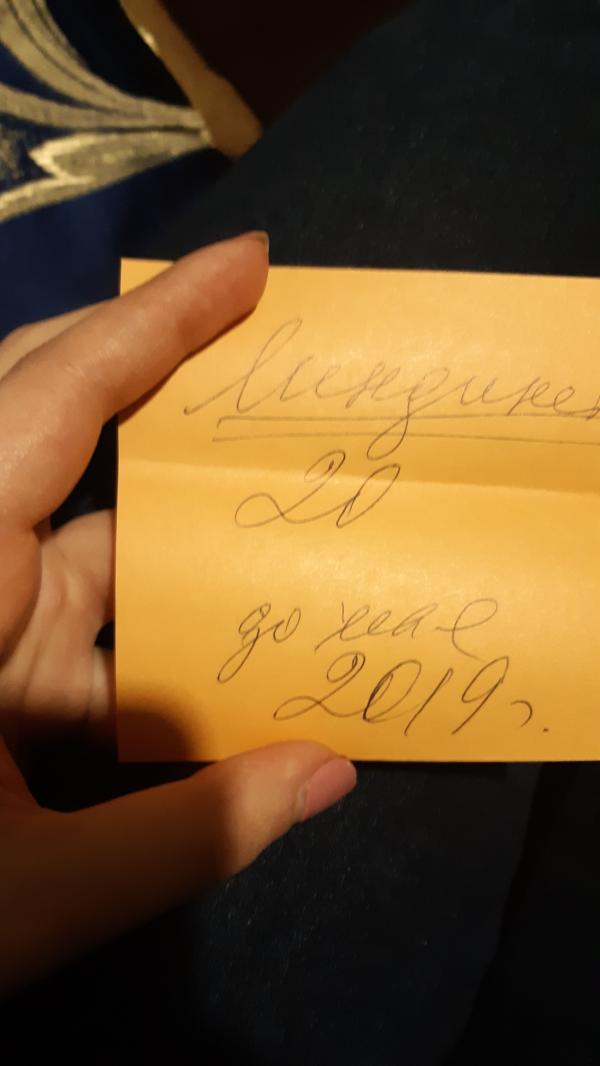 Линдинет
20
до мая
2019г.